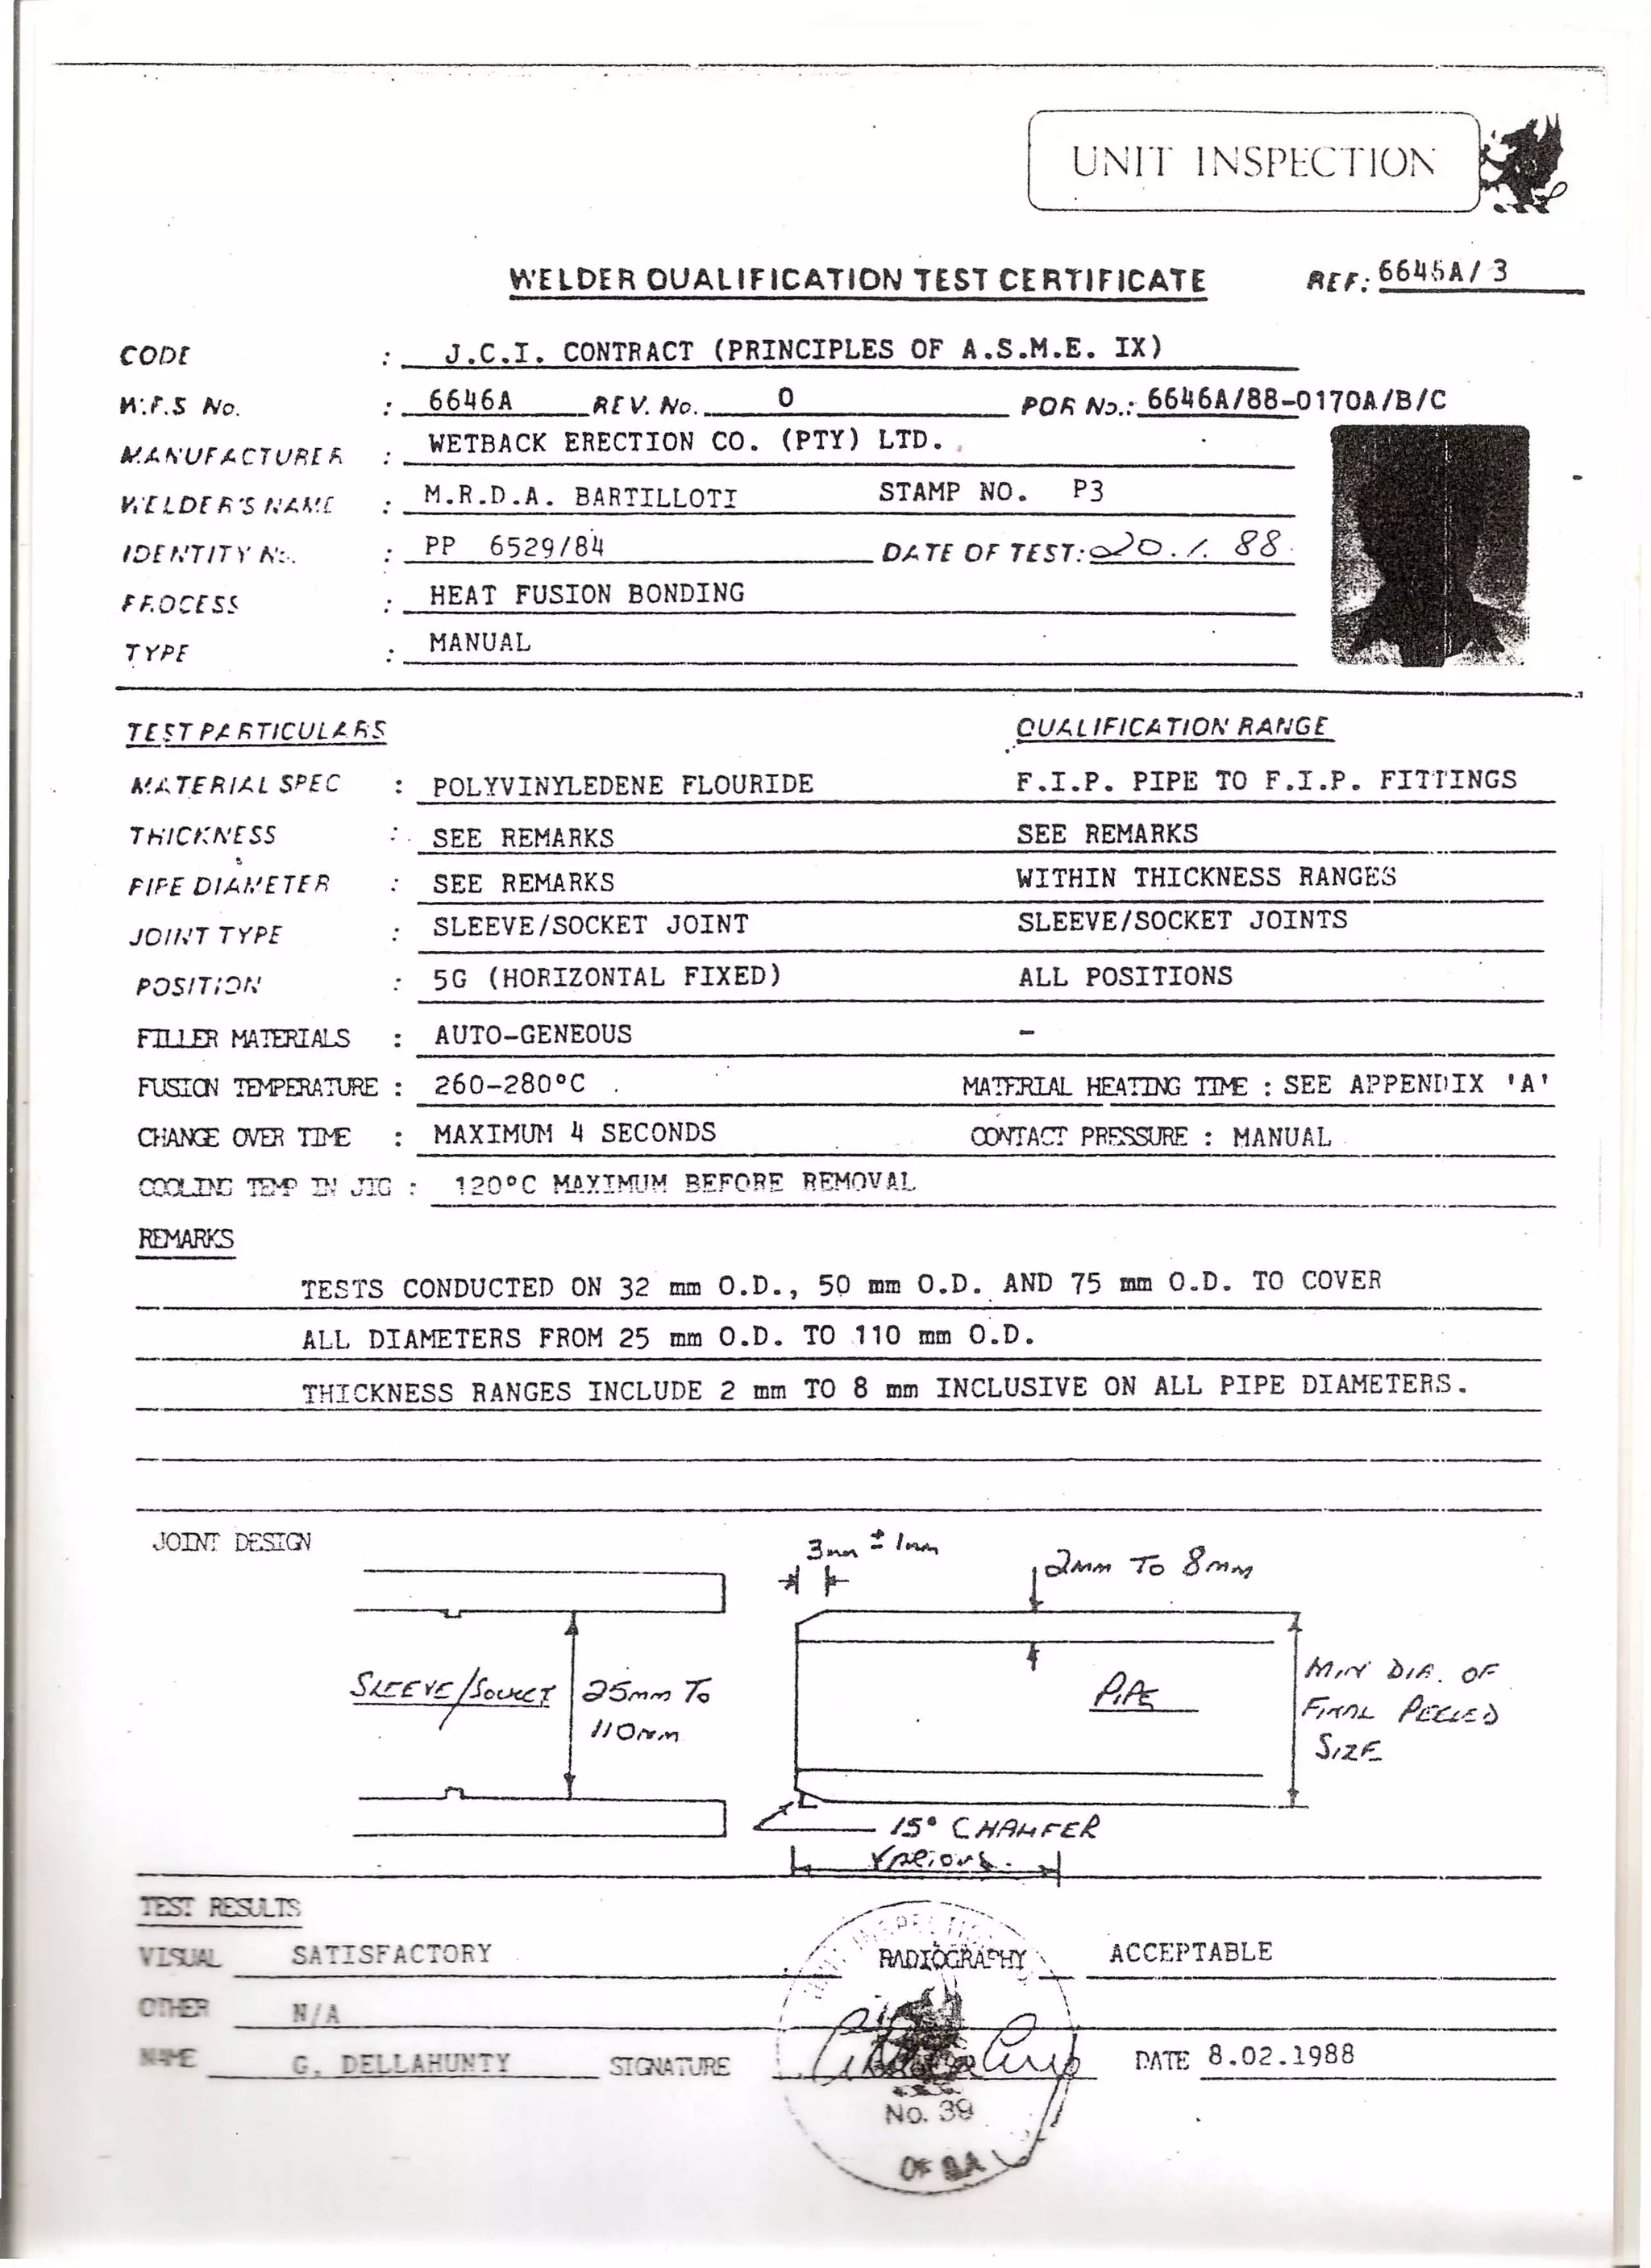 UNIT INSPECTION
WELDER QUALIFICATION TEST CERTIFICATE REF: 6646A/3
CODE : J.C.I. CONTRACT (PRINCIPLES OF A.S.M.E. IX)
W.P.S No. : 6646A REV. No. 0 PQR No.: 6646A/88-0170A/B/C
MANUFACTURER : WETBACK ERECTION CO. (PTY) LTD.
WELDER'S NAME : M.R.D.A. BARTILLOTI STAMP NO. P3
IDENTITY No. : PP 6529/84 DATE OF TEST: 20.1.88.
PROCESS : HEAT FUSION BONDING
TYPE : MANUAL
TEST PARTICULARS QUALIFICATION RANGE
MATERIAL SPEC : POLYVINYLEDENE FLOURIDE F.I.P. PIPE TO F.I.P. FITTINGS
THICKNESS : SEE REMARKS SEE REMARKS
PIPE DIAMETER : SEE REMARKS WITHIN THICKNESS RANGES
JOINT TYPE : SLEEVE/SOCKET JOINT SLEEVE/SOCKET JOINTS
POSITION : 5G (HORIZONTAL FIXED) ALL POSITIONS
FILLER MATERIALS : AUTO-GENEOUS -
FUSION TEMPERATURE : 260-280°C MATERIAL HEATING TIME : SEE APPENDIX 'A'
CHANGE OVER TIME : MAXIMUM 4 SECONDS CONTACT PRESSURE : MANUAL
COOLING TEMP IN JIG : 120°C MAXIMUM BEFORE REMOVAL
REMARKS
TESTS CONDUCTED ON 32 mm O.D., 50 mm O.D. AND 75 mm O.D. TO COVER
ALL DIAMETERS FROM 25 mm O.D. TO 110 mm O.D.
THICKNESS RANGES INCLUDE 2 mm TO 8 mm INCLUSIVE ON ALL PIPE DIAMETERS.
JOINT DESIGN
3mm ± 1mm
2mm To 8mm
SLEEVE/SOCKET
25mm To
110mm
PIPE
MIN DIA. OF
FINAL PEELED
SIZE
15° CHAMFER
VARIOUS.
TEST RESULTS
VISUAL SATISFACTORY RADIOGRAPHY ACCEPTABLE
OTHER N/A
NAME G. DELLAHUNTY SIGNATURE DATE 8.02.1988
No. 39